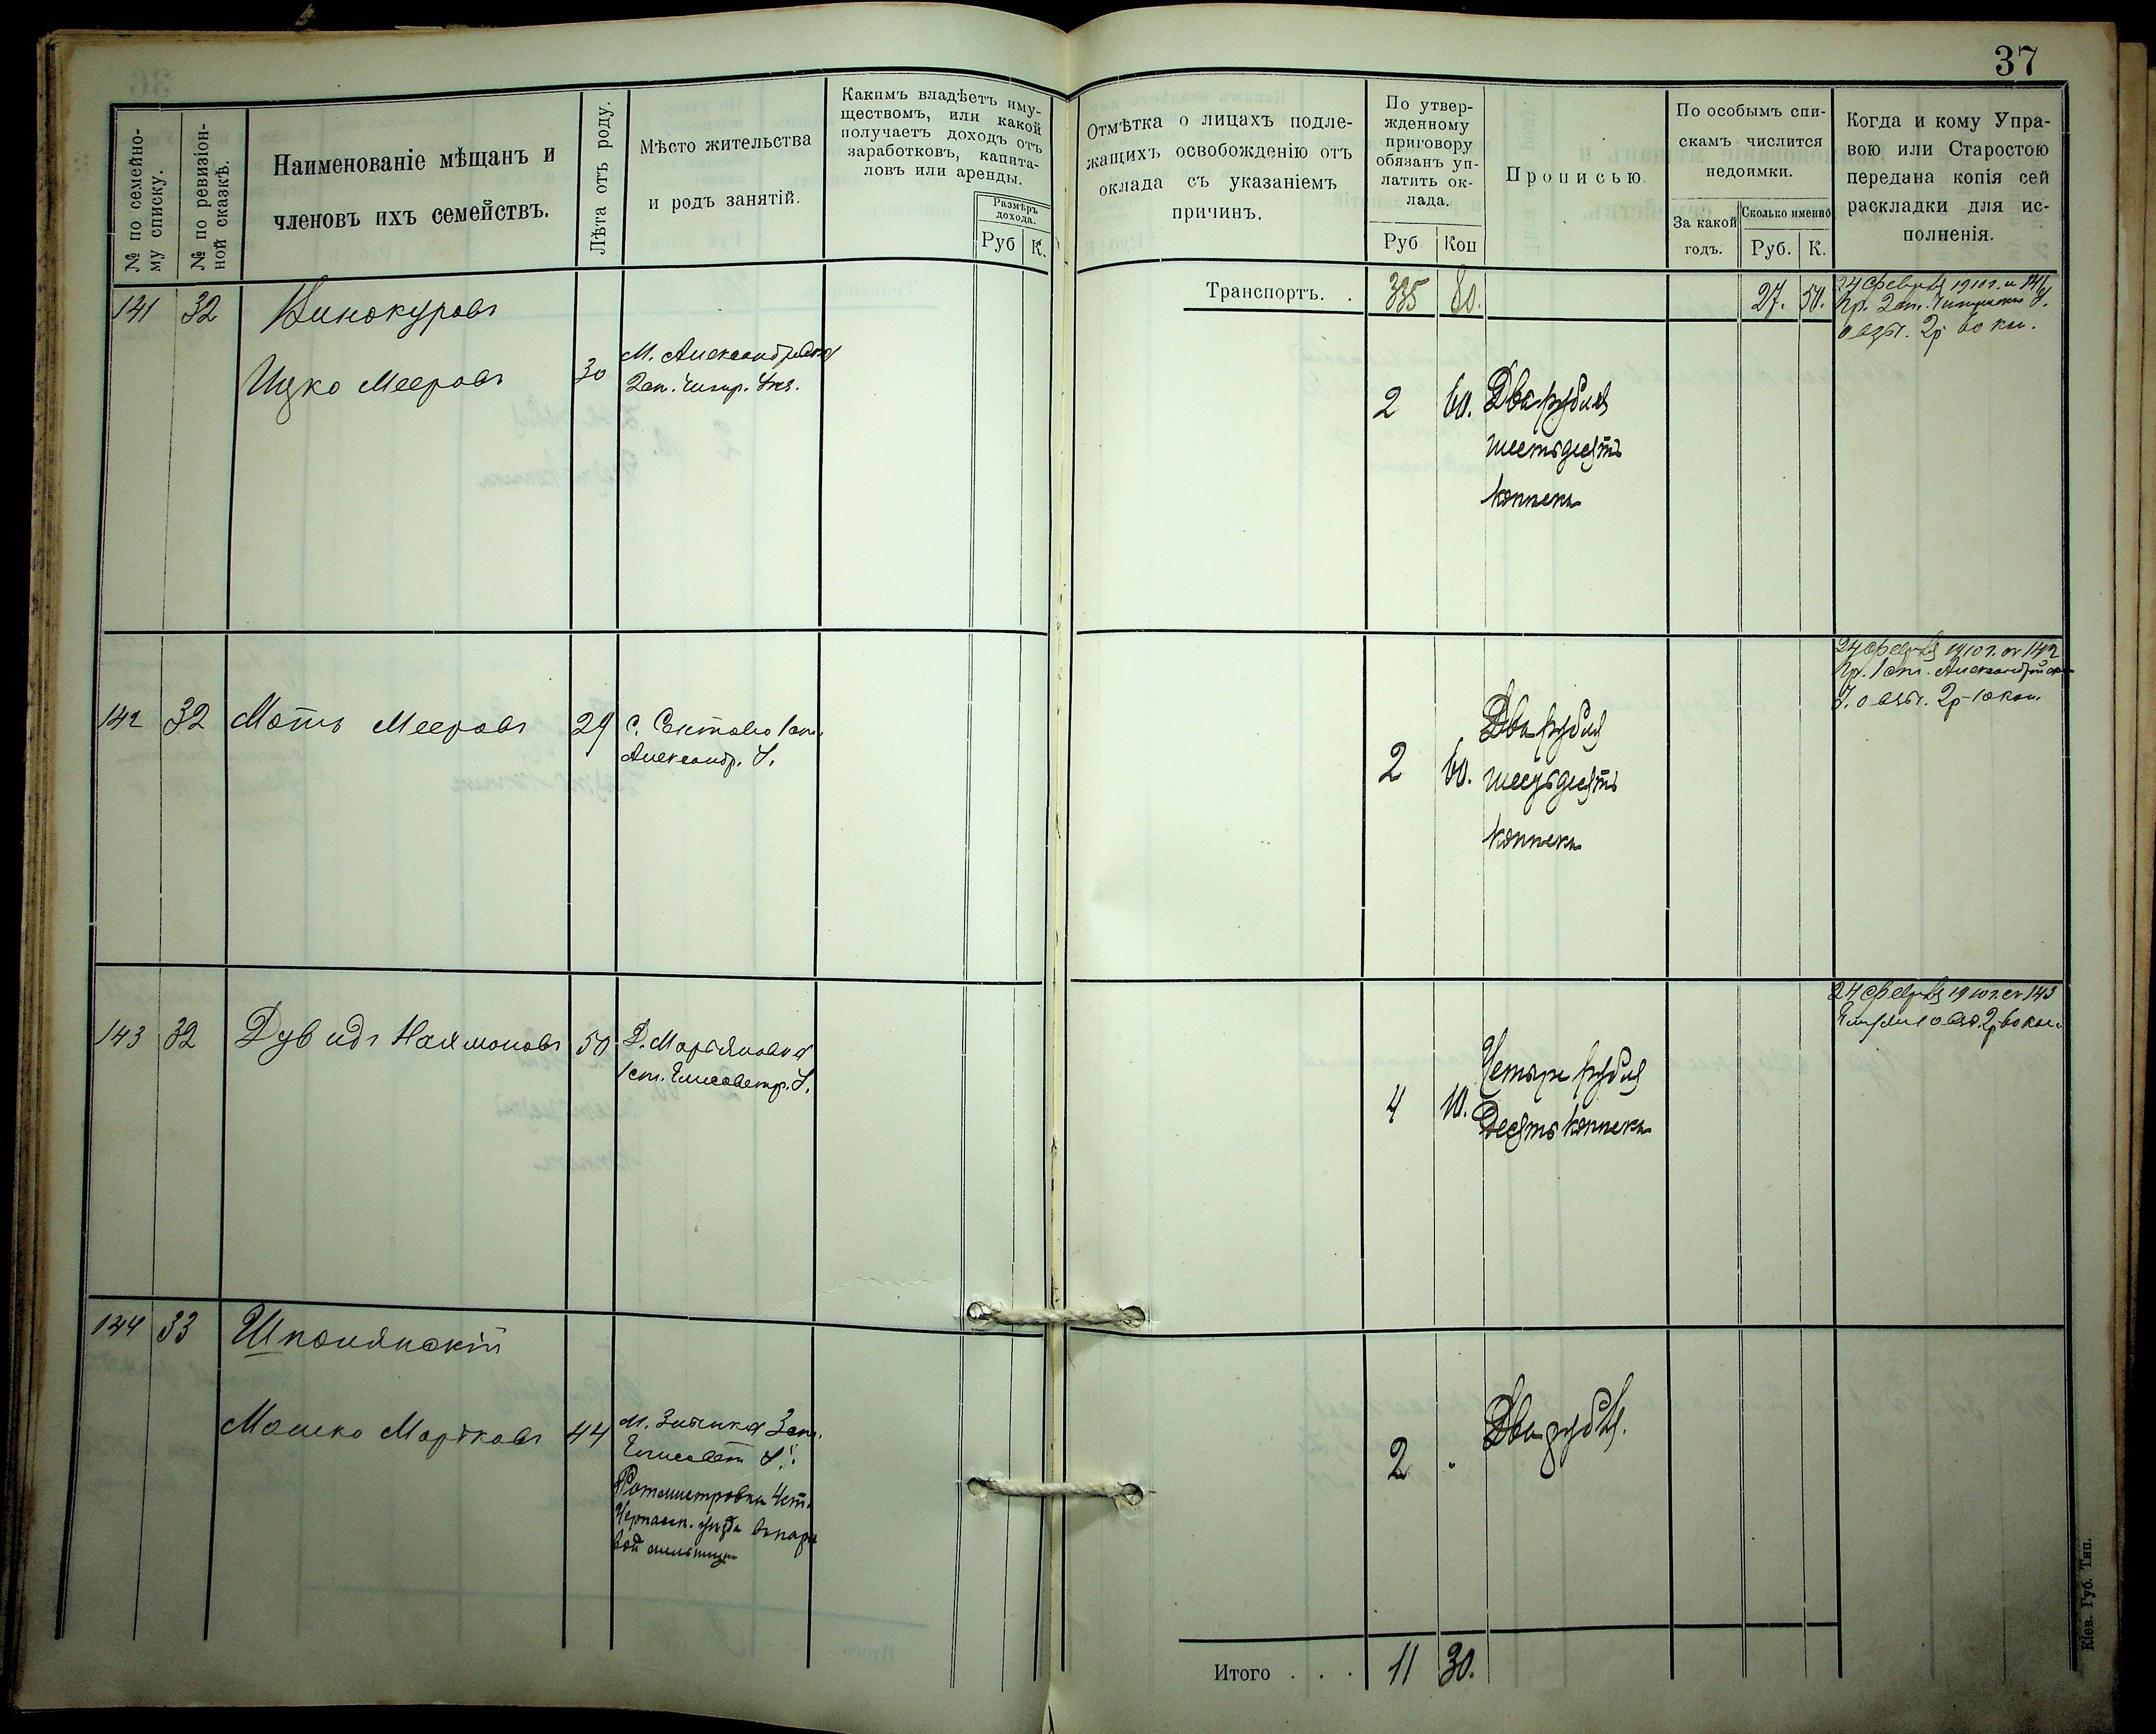 37
№ по семейно-
му списку.
№ по ревизіон-
ной сказкѣ.
Наименованіе мѣщанъ и
членовъ ихъ семействъ.
Лѣта отъ роду.
Мѣсто жительства
и родъ занятій.
Какимъ владѣетъ иму-
ществомъ, или какой
получаетъ доходъ отъ
заработковъ, капита-
ловъ или аренды.
Размѣръ
дохода.
Руб К.
Отмѣтка о лицахъ подле-
жащихъ освобожденію отъ
оклада съ указаніемъ
причинъ.
По утвер-
жденному
приговору
обязанъ уп-
латить ок-
лада.
Руб Коп
Прописью.
По особымъ спи-
скамъ числится
недоимки.
За какой
годъ.
Сколько именно
Руб. К.
Когда и кому Упра-
вою или Старостою
передана копія сей
раскладки для ис-
полненія.
Транспортъ. . 335 80. 27. 50.
141 32 Винокуровъ
Ицко Мееровъ 30
М. Александровка
2 60. Два рубля
шестьдесятъ
копѣекъ
24 Февраля 1910 г. 141
142 32 Моть Мееровъ 29
Александр. У.
2 60. Два рубля
шестьдесятъ
копѣекъ
24 Февраля 1910 г. 142
143 32 Дувидъ Наимоновъ 50
1 ст. Елисаветр. У.
4 10. Четыре рубля
Десять копѣекъ
24 Февраля 1910 г. 143
144 33 Шполянскій
Мошко Марковъ 44
М. Златика 3 ст.
Елисавет У.
Ротмистровка 4 ст.
2 " Два рубля.
Итого . . . 11 30.
Кіев. Губ. Тип.